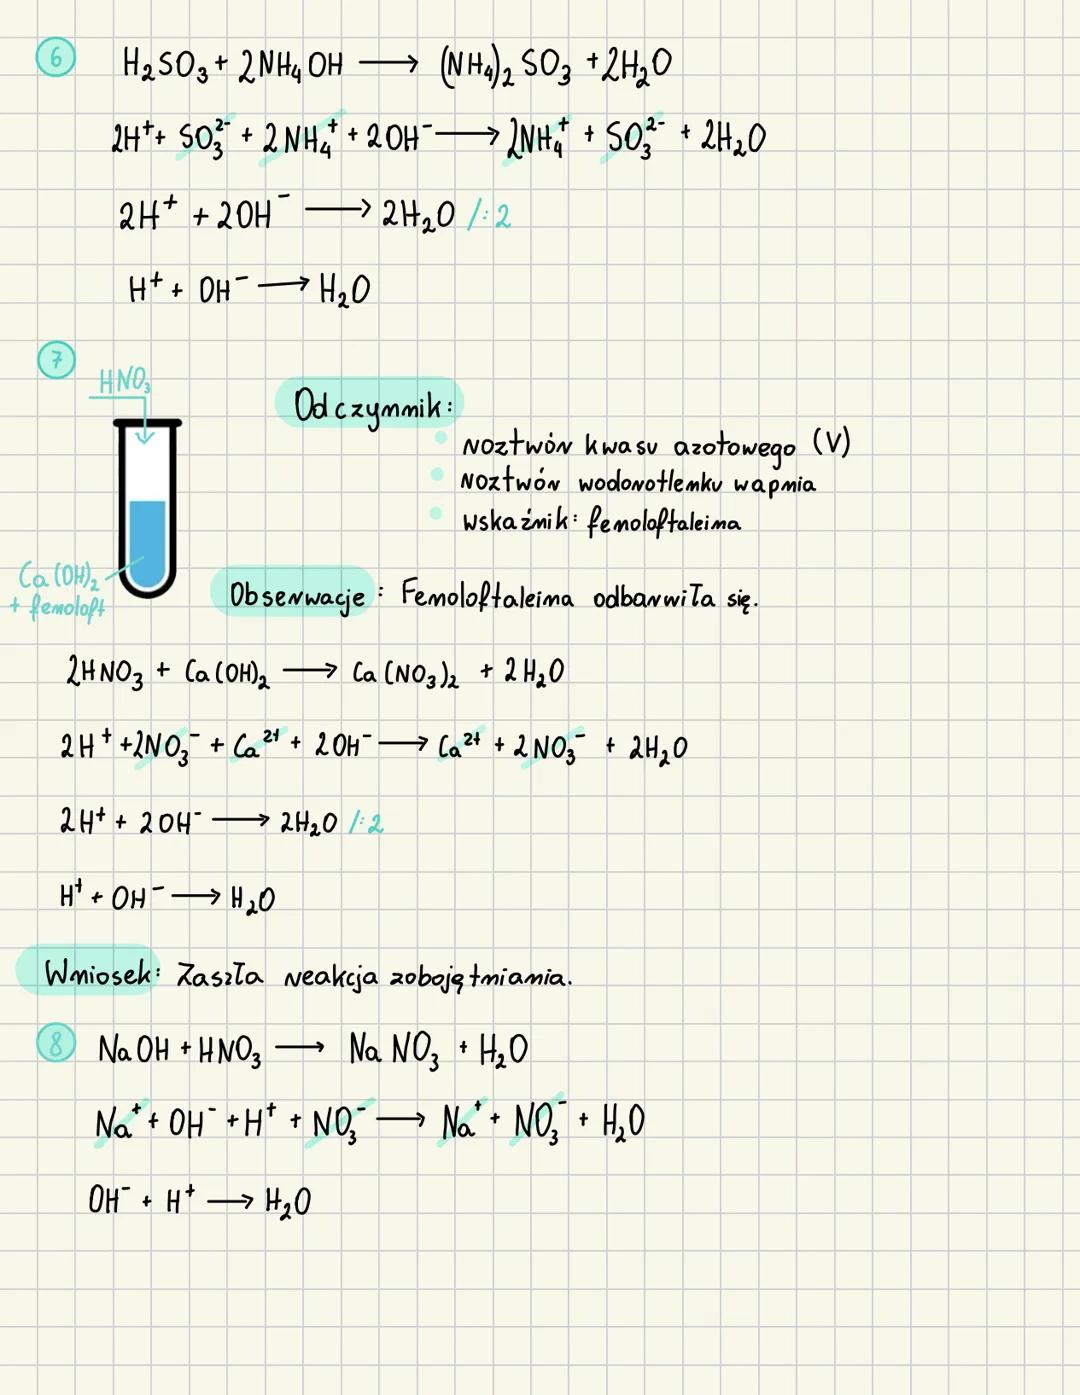 6 H₂SO₃ + 2NH₄OH ⟶ (NH₄)₂SO₃ + 2H₂O
2H⁺ + SO₃²⁻ + 2NH₄⁺ + 2OH⁻ ⟶ 2NH₄⁺ + SO₃²⁻ + 2H₂O
2H⁺ + 2OH⁻ ⟶ 2H₂O /:2
H⁺ + OH⁻ ⟶ H₂O
7
HNO₃
Odczynnik:
roztwór kwasu azotowego (V)
roztwór wodorotlenku wapnia
wskaźnik: fenoloftaleina
Ca(OH)₂
+ fenoloft
Obserwacje: Fenoloftaleina odbarwiła się.
2HNO₃ + Ca(OH)₂ ⟶ Ca(NO₃)₂ + 2H₂O
2H⁺ + 2NO₃⁻ + Ca²⁺ + 2OH⁻ ⟶ Ca²⁺ + 2NO₃⁻ + 2H₂O
2H⁺ + 2OH⁻ ⟶ 2H₂O /:2
H⁺ + OH⁻ ⟶ H₂O
Wniosek: Zaszła reakcja zobojętniania.
8 NaOH + HNO₃ ⟶ NaNO₃ + H₂O
Na⁺ + OH⁻ + H⁺ + NO₃⁻ ⟶ Na⁺ + NO₃⁻ + H₂O
OH⁻ + H⁺ ⟶ H₂O